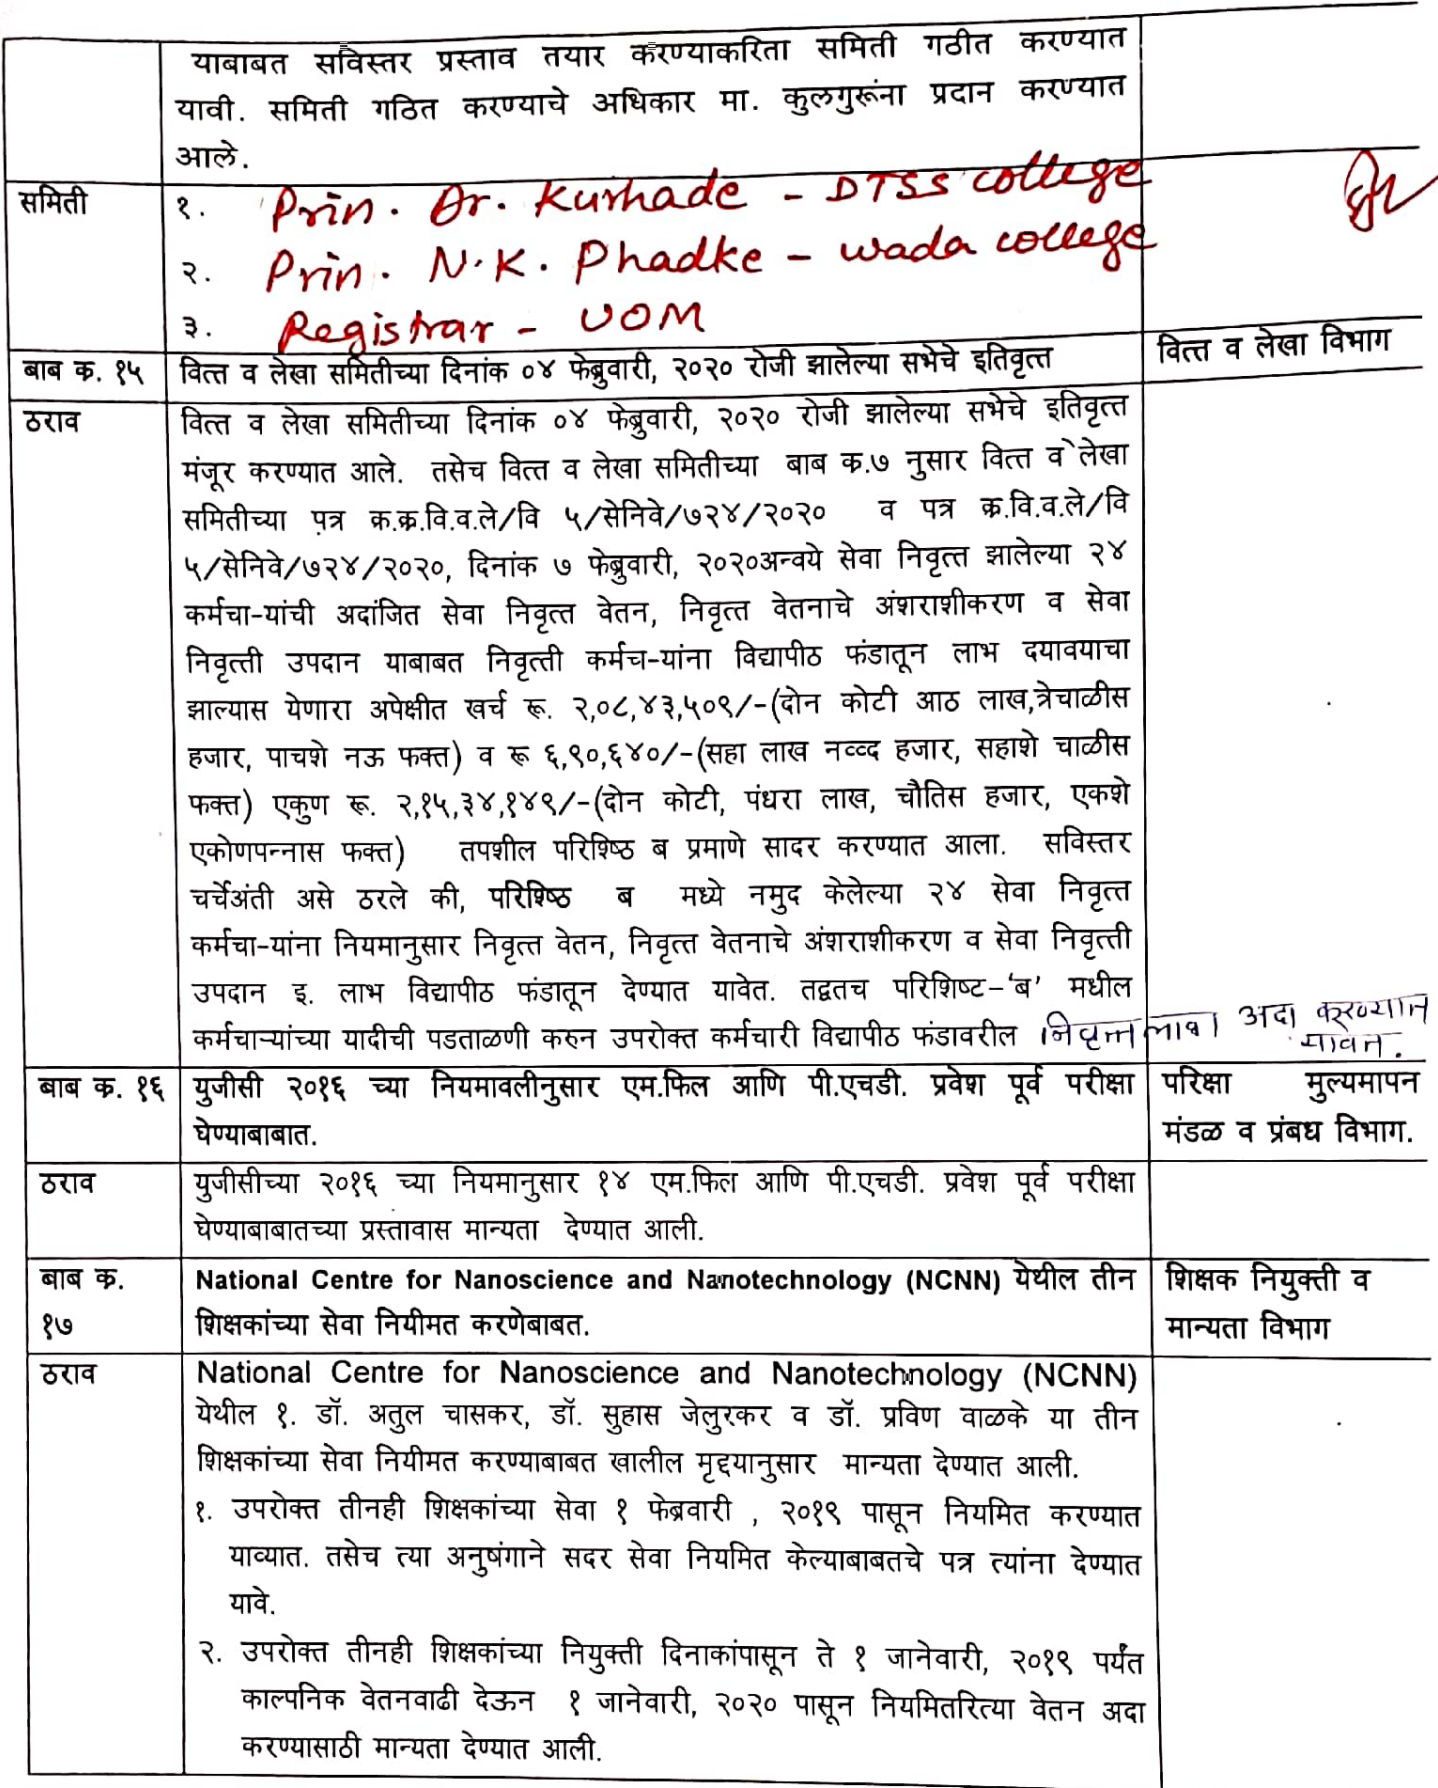 याबाबत सविस्तर प्रस्ताव तयार करण्याकरिता समिती गठीत करण्यात
यावी. समिती गठित करण्याचे अधिकार मा. कुलगुरूंना प्रदान करण्यात
आले.
समिती
१. Prin. Dr. Kurhade - DTSS college
२. Prin. N.K. Phadke - wada college
३. Registrar - UOM
बाब क्र. १५ वित्त व लेखा समितीच्या दिनांक ०४ फेब्रुवारी, २०२० रोजी झालेल्या सभेचे इतिवृत्त वित्त व लेखा विभाग
ठराव वित्त व लेखा समितीच्या दिनांक ०४ फेब्रुवारी, २०२० रोजी झालेल्या सभेचे इतिवृत्त
मंजूर करण्यात आले. तसेच वित्त व लेखा समितीच्या बाब क्र.७ नुसार वित्त व लेखा
समितीच्या पत्र क्र.क्र.वि.व.ले/वि ५/सेनिवे/७२४/२०२० व पत्र क्र.वि.व.ले/वि
५/सेनिवे/७२४/२०२०, दिनांक ७ फेब्रुवारी, २०२०अन्वये सेवा निवृत्त झालेल्या २४
कर्मचा-यांची अदांजित सेवा निवृत्त वेतन, निवृत्त वेतनाचे अंशराशीकरण व सेवा
निवृत्ती उपदान याबाबत निवृत्ती कर्मच-यांना विद्यापीठ फंडातून लाभ दयावयाचा
झाल्यास येणारा अपेक्षीत खर्च रू. २,०८,४३,५०९/-(दोन कोटी आठ लाख,त्रेचाळीस
हजार, पाचशे नऊ फक्त) व रू ६,९०,६४०/-(सहा लाख नव्वद हजार, सहाशे चाळीस
फक्त) एकुण रू. २,१५,३४,१४९/-(दोन कोटी, पंधरा लाख, चौतिस हजार, एकशे
एकोणपन्नास फक्त) तपशील परिशिष्ठ ब प्रमाणे सादर करण्यात आला. सविस्तर
चर्चेअंती असे ठरले की, परिशिष्ठ ब मध्ये नमुद केलेल्या २४ सेवा निवृत्त
कर्मचा-यांना नियमानुसार निवृत्त वेतन, निवृत्त वेतनाचे अंशराशीकरण व सेवा निवृत्ती
उपदान इ. लाभ विद्यापीठ फंडातून देण्यात यावेत. तद्वतच परिशिष्ट-'ब' मधील
कर्मचाऱ्यांच्या यादीची पडताळणी करुन उपरोक्त कर्मचारी विद्यापीठ फंडावरील निवृत्त लाभ अदा करण्यात
यावेत.
बाब क्र. १६ युजीसी २०१६ च्या नियमावलीनुसार एम.फिल आणि पी.एचडी. प्रवेश पूर्व परीक्षा परिक्षा मुल्यमापन
घेण्याबाबात. मंडळ व प्रंबध विभाग.
ठराव युजीसीच्या २०१६ च्या नियमानुसार १४ एम.फिल आणि पी.एचडी. प्रवेश पूर्व परीक्षा
घेण्याबाबातच्या प्रस्तावास मान्यता देण्यात आली.
बाब क्र. National Centre for Nanoscience and Nanotechnology (NCNN) येथील तीन शिक्षक नियुक्ती व
१७ शिक्षकांच्या सेवा नियीमत करणेबाबत. मान्यता विभाग
ठराव National Centre for Nanoscience and Nanotechnology (NCNN)
येथील १. डॉ. अतुल चासकर, डॉ. सुहास जेलुरकर व डॉ. प्रविण वाळके या तीन
शिक्षकांच्या सेवा नियीमत करण्याबाबत खालील मृद्दयानुसार मान्यता देण्यात आली.
१. उपरोक्त तीनही शिक्षकांच्या सेवा १ फेब्रवारी , २०१९ पासून नियमित करण्यात
याव्यात. तसेच त्या अनुषंगाने सदर सेवा नियमित केल्याबाबतचे पत्र त्यांना देण्यात
यावे.
२. उपरोक्त तीनही शिक्षकांच्या नियुक्ती दिनाकांपासून ते १ जानेवारी, २०१९ पर्यंत
काल्पनिक वेतनवाढी देऊन १ जानेवारी, २०२० पासून नियमितरित्या वेतन अदा
करण्यासाठी मान्यता देण्यात आली.